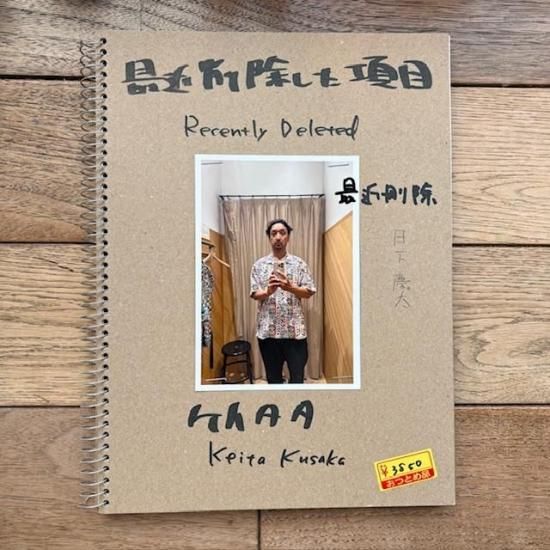 最近削除した項目
Recently Deleted
最近削除
日下慶太
Keita Kusaka
¥3850
おつとめ品